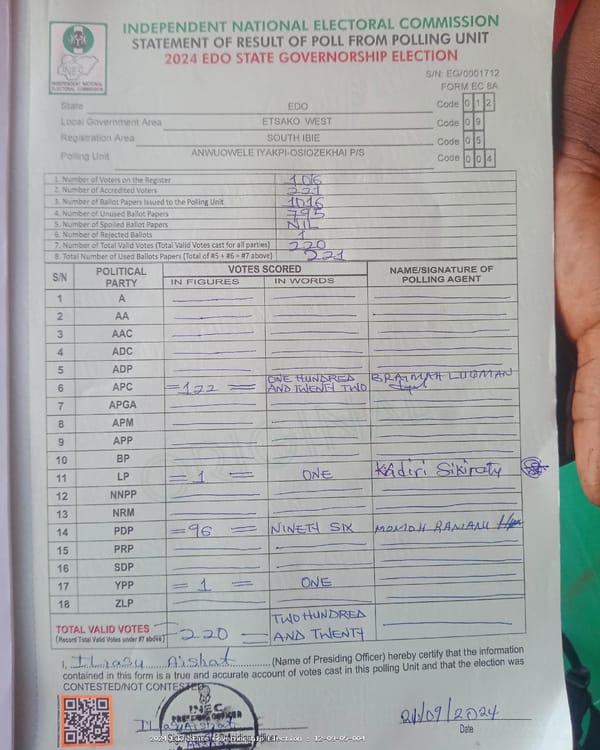 INDEPENDENT NATIONAL ELECTORAL COMMISSION
STATEMENT OF RESULT OF POLL FROM POLLING UNIT
2024 EDO STATE GOVERNORSHIP ELECTION
INEC
INDEPENDENT NATIONAL ELECTORAL COMMISSION
S/N: EG/0001712
FORM EC 8A
State EDO Code 0 1 2
Local Government Area ETSAKO WEST Code 0 9
Registration Area SOUTH IBIE Code 0 5
Polling Unit ANWUOWELE IYAKPI-OSIOZEKHAI P/S Code 0 0 4
1. Number of Voters on the Register
2. Number of Accredited Voters 221
3. Number of Ballot Papers Issued to the Polling Unit 1016
4. Number of Unused Ballot Papers 795
5. Number of Spoiled Ballot Papers NIL
6. Number of Rejected Ballots 1
7. Number of Total Valid Votes (Total Valid Votes cast for all parties) 220
8. Total Number of Used Ballots Papers (Total of #5 + #6 + #7 above) 221
S/N POLITICAL PARTY VOTES SCORED NAME/SIGNATURE OF POLLING AGENT
IN FIGURES IN WORDS
1 A
2 AA
3 AAC
4 ADC
5 ADP
6 APC =122= ONE HUNDRED AND TWENTY TWO BRAIMAH LUQMAN
7 APGA
8 APM
9 APP
10 BP
11 LP =1= ONE Kadiri Sikiraty
12 NNPP
13 NRM
14 PDP =96= NINETY SIX MOMOH
15 PRP
16 SDP
17 YPP =1= ONE
18 ZLP
TOTAL VALID VOTES =220= TWO HUNDRED AND TWENTY
(Record Total Valid Votes under #7 above)
I, Aishat (Name of Presiding Officer) hereby certify that the information
contained in this form is a true and accurate account of votes cast in this polling Unit and that the election was
CONTESTED/NOT CONTESTED
INEC
PRESIDING OFFICER
21/09/2024
Date
2024 Edo State Governorship Election : 12-09-05-004